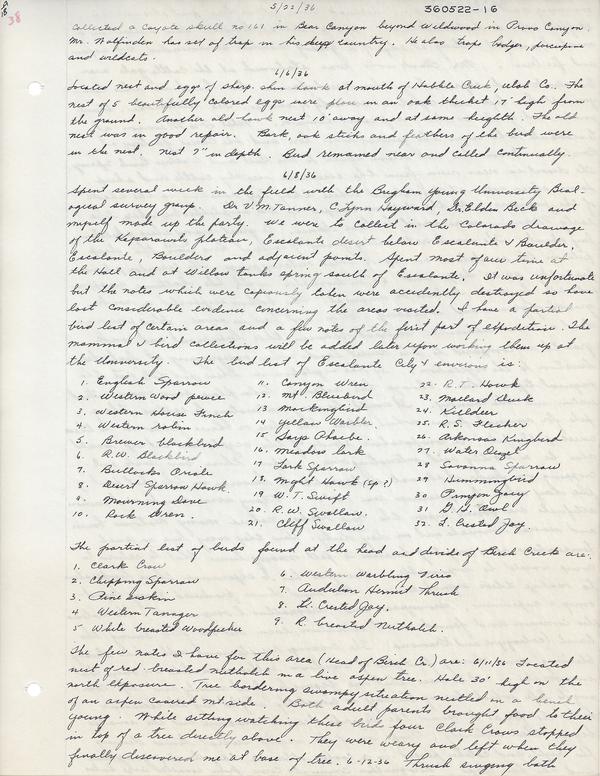 5/22/36 360522-16
38
Collected a Coyote skull no 161 in Bear Canyon beyond Wildwood in Provo Canyon.
Mr. Wolfinden has set of trap in his deep country. He also traps badger, porcupine
and wildcats.
6/6/36
Located nest and eggs of sharp. shin hawk at mouth of Hobble Creek, Utah Co. The
nest of 5 beautifully colored eggs were place in an oak thicket 17' high from
the ground. Another old hawk nest 10' away and at same heighth. The old
nest was in good repair. Bark, oak sticks and feathers of the bird were
in the nest. Nest 7" in depth. Bird remained near and called continually.
6/8/36
Spent several week in the field with the Brigham Young University Biol-
ogical survey group. Dr V.M. Tanner, C. Lynn Hayward, D. Elden Beck and
myself made up the party. We were to collect in the Colorado drainage
of the Kaiparowits plateau, Escalante desert below Escalante & Boulder,
Escalante, Boulders and adjacent points. Spent most of our time at
the Hall and at Willow tanks spring south of Escalante. It was unfortunate
but the notes which were copiously taken were accidently destroyed so have
lost considerable evidence concerning the areas visited. I have a partial
bird list of certain areas and a few notes of the first part of expedition. The
mammal & bird collections will be added later upon working them up at
the University. The bird list of Escalante City & environs is:
1. English Sparrow
2. Western Wood pewee
3. Western House Finch
4. Western robin
5. Brewer blackbird
6. R.W. Blackbird
7. Bullocks Oriole
8. Desert Sparrow Hawk.
9. Mourning Dove
10. Rock Wren.
11. Canyon Wren
12. Mt. Bluebird
13 Mockingbird
14 Yellow Warbler
15 Says Phoebe.
16. Meadow lark
17 Lark Sparrow
18. Night Hawk (Sp?)
19 W. T. Swift
20. R.W. Swallow
21. Cliff Swallow
22. R.T. Hawk
23. Mallard Duck
24. Killdeer
25. R.S. Flicker
26. Arkansas Kingbird
27. Water Ouzel
28 Savanna Sparrow
29 Hummingbird
30 Pinyon Jay
31 G.H. Owl
32. L. Crested Jay.
The partial list of birds found at the head and divide of Birch Creek are:
1. Clark Crow
2. Chipping Sparrow
3. Pine siskin
4 Western Tanager
5 White breasted Woodpecker
6. Western Warbling Vireo
7. Audubon Hermit Thrush
8. L. Crested Jay.
9. R. breasted Nuthatch.
The few notes I have for this area (Head of Birch Cr.) are: 6/11/36 Located
nest of red breasted nuthatch in a live aspen tree. Hole 30' high on the
north exposure. Tree bordering swampy situation nestled on a bench
of an aspen covered mt. side. Both adult parents brought food to their
young. While sitting watching these bird four Clark Crows stopped
in top of a tree directly above. They were weary and left when they
finally discovered me at base of tree. 6-12-36 Thrush singing both